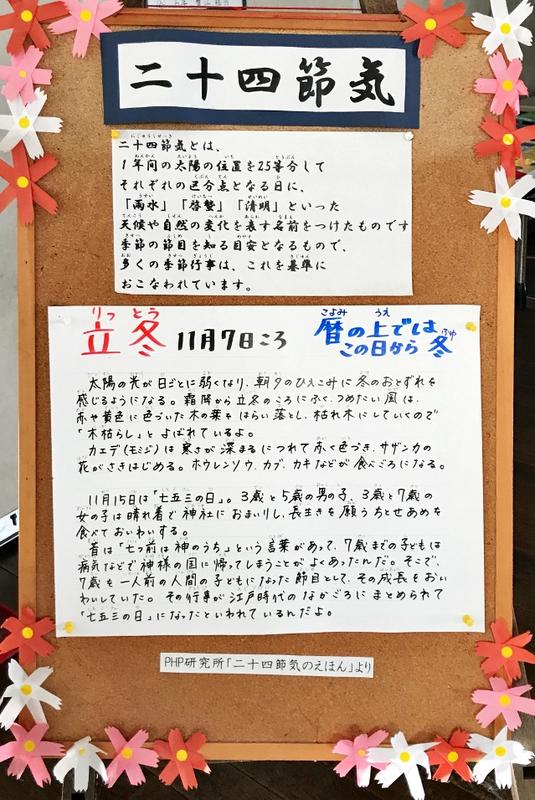 二十四節気
二十四節気とは、
1年間の太陽の位置を25等分して
それぞれの区分点となる日に、
「雨水」「啓蟄」「清明」といった
天候や自然の変化を表す名前をつけたものです
季節の節目を知る目安となるもので、
多くの季節行事は、これを基準に
おこなわれています。
りっとう
立冬 11月7日ころ
こよみ うえ
暦の上では
この日から冬
ふゆ
太陽の光が日ごとに弱くなり、朝夕のひえこみに冬のおとずれを
感じるようになる。霜降から立冬のころにふく、つめたい風は、
赤や黄色に色づいた木の葉をはらい落とし、枯れ木にしていくので
「木枯らし」とよばれているよ。
カエデ(モミジ)は寒さが深まるにつれて赤く色づき、サザンカの
花がさきはじめる。ホウレンソウ、カブ、カキなどが食べごろになる。
11月15日は「七五三の日」。3歳と5歳の男の子、3歳と7歳の
女の子は晴れ着で神社におまいりし、長生きを願うちとせあめを
食べておいわいする。
昔は「七つ前は神のうち」という言葉があって、7歳までの子どもは
病気などで神様の国に帰ってしまうことがよくあったんだ。そこで、
7歳を一人前の人間の子どもになった節目として、その成長をおい
わいしていた。その行事が江戸時代のなかごろにまとめられて
「七五三の日」になったといわれているんだよ。
PHP研究所「二十四節気のえほん」より